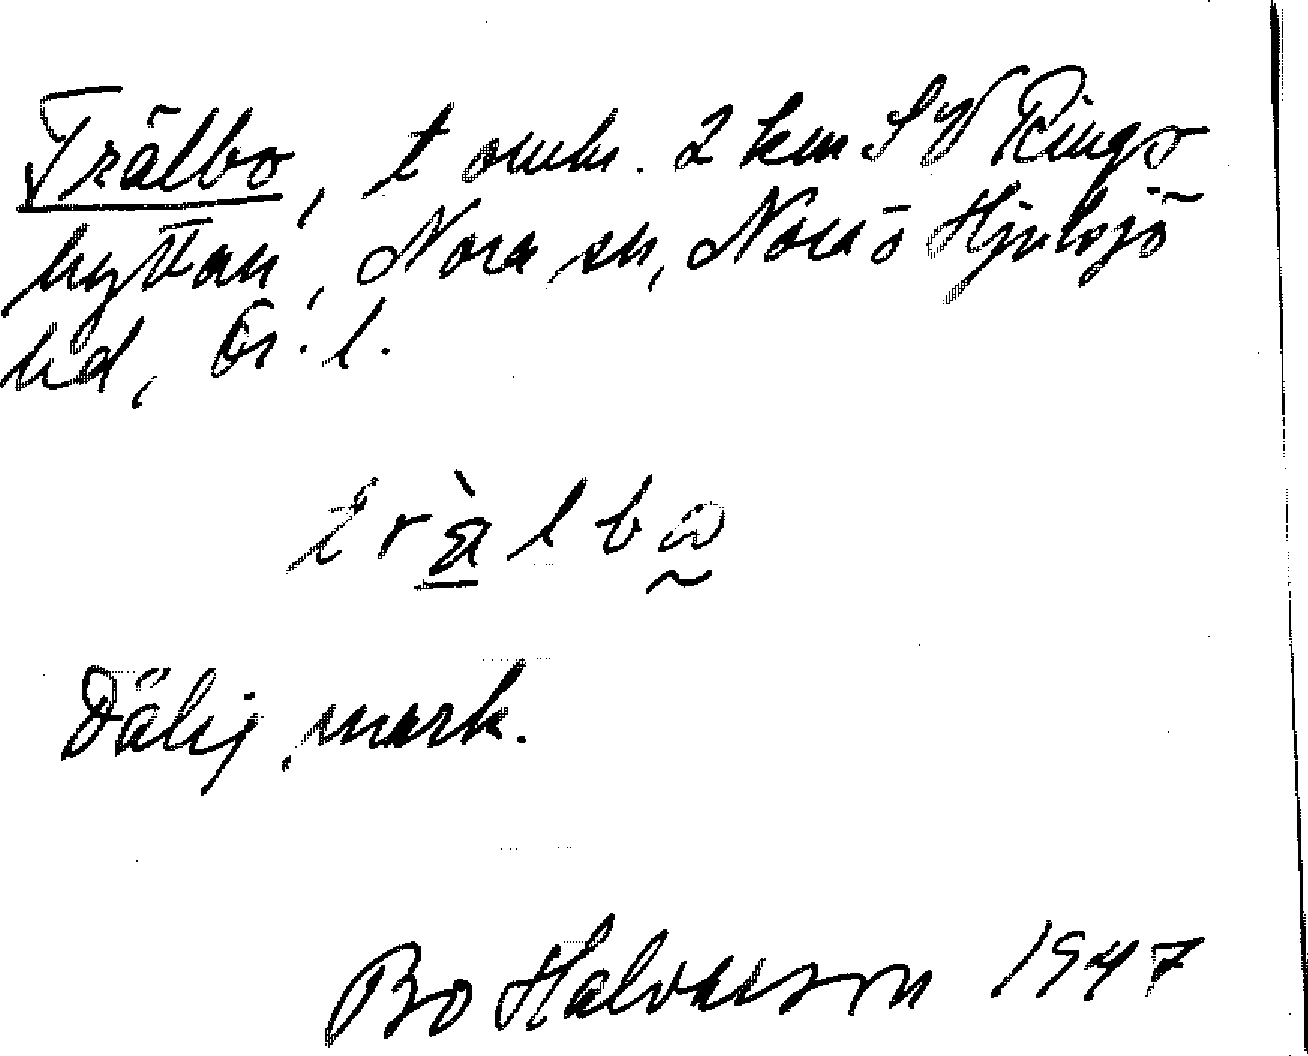 Trälbo, t omr. 2 km SV Rings-
hyttan, Nora sn, Nora o Hjulsjö
hd, Ör. l.
tràlbω
Dålig mark.
Bo Halvarson 1947